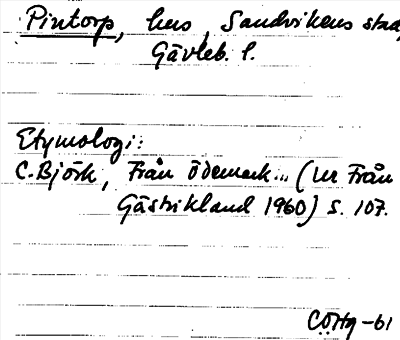 Pintorp, hus, Sandvikens stad,
Gävleb. l.
Etymologi:
C. Björk, Från ödemark... (ur Från
Gästrikland 1960) s. 107.
-61